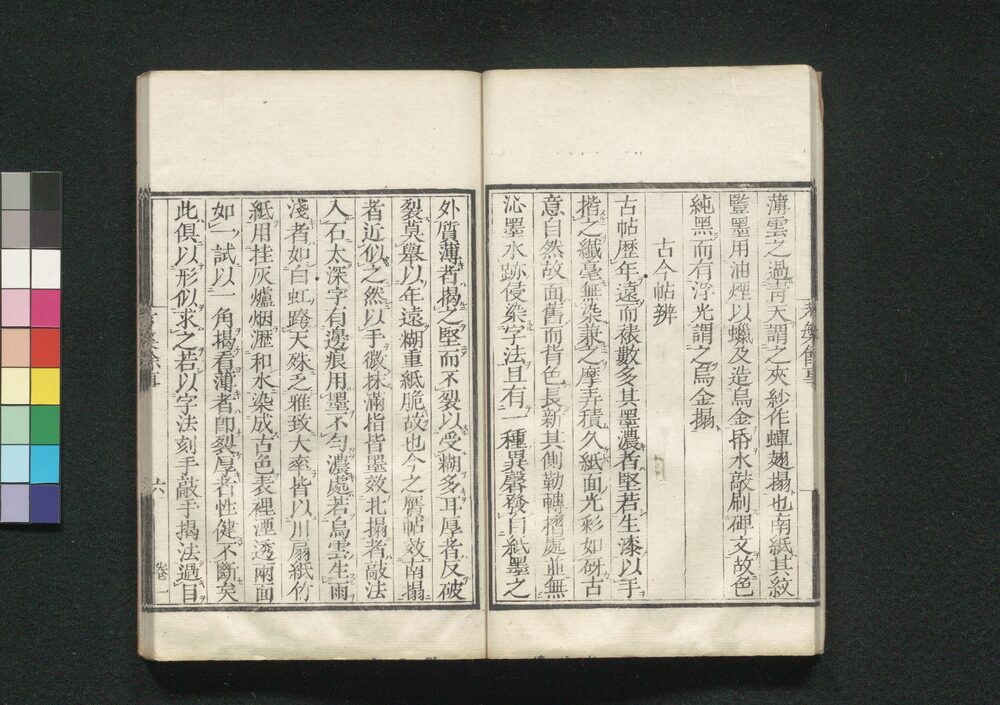 薄雲之過青天謂之夾紗作蟬翅搨也南紙其紋
豎墨用油煙以蠟及造烏金𣖙水敲刷碑文故色
純黑而有浮光謂之烏金搨
古今帖辨
古帖歷年遠而裱數多其墨濃者堅若生漆以手
揩之纖毫無染兼之摩弄積久紙面光彩如砑古
意自然故面舊而背色長新其側勒轉摺處並無
沁墨水跡侵染字法且有一種異馨發自紙墨之
外質薄者揭之堅而不裂以受糊多耳厚者反破
裂莫舉以年遠糊重紙脆故也今之贗帖效南搨
者近似之然以手微抹滿指皆墨效北搨者敲法
入石太深字有邊痕用墨不勻濃處若烏雲生雨
淺者如白虹跨天殊乏雅致大率皆以川扇紙竹
紙用挂灰爐烟瀝和水染成古色表裡湮透兩面
如一試以一角揭看薄者即裂厚者性健不斷矣
此俱以形似求之若以字法刻手敲手揭法過目
考槃餘事
六
卷一